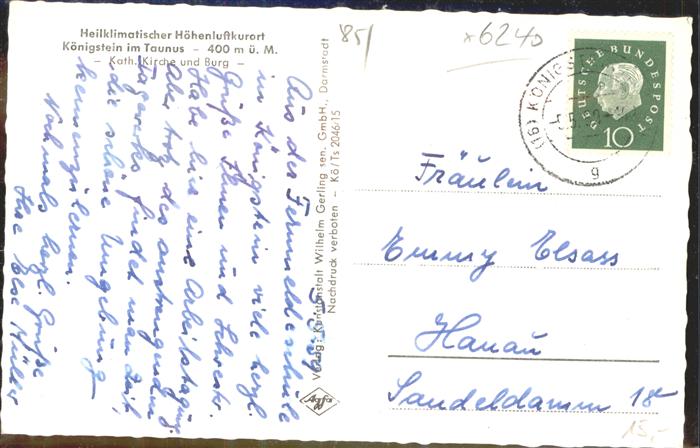 Heilklimatischer Höhenluftkurort
Königstein im Taunus – 400 m ü. M.
– Kath. Kirche und Burg –
85/
x6240
Aus der Fernmeldeschule
in Königstein viele herzl.
Grüße Ihnen und Schwester.
Habe hier eine Arbeitstagung
Aber trotz des anstrengenden
Tagwerkes findet man Zeit,
die schöne Umgebung
kennenzulernen.
Nochmals herzl. Grüße
Ihre Else Müller
Verlag: Kunstanstalt Wilhelm Gerling sen. GmbH., Darmstadt
Nachdruck verboten – Kö/Ts 2046/15
Agfa
DEUTSCHE BUNDESPOST
10
(16) KÖNIGS
g
Fräulein
Emmy Elsass
Hanau
Sandeldamm 18
15,-